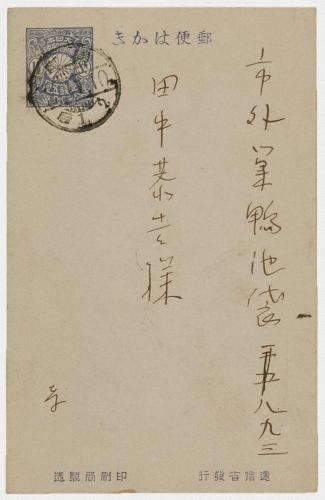 郵便はかき
市外巣鴨池袋八九三
田中恭吉様
遞信省發行
印刷局製造